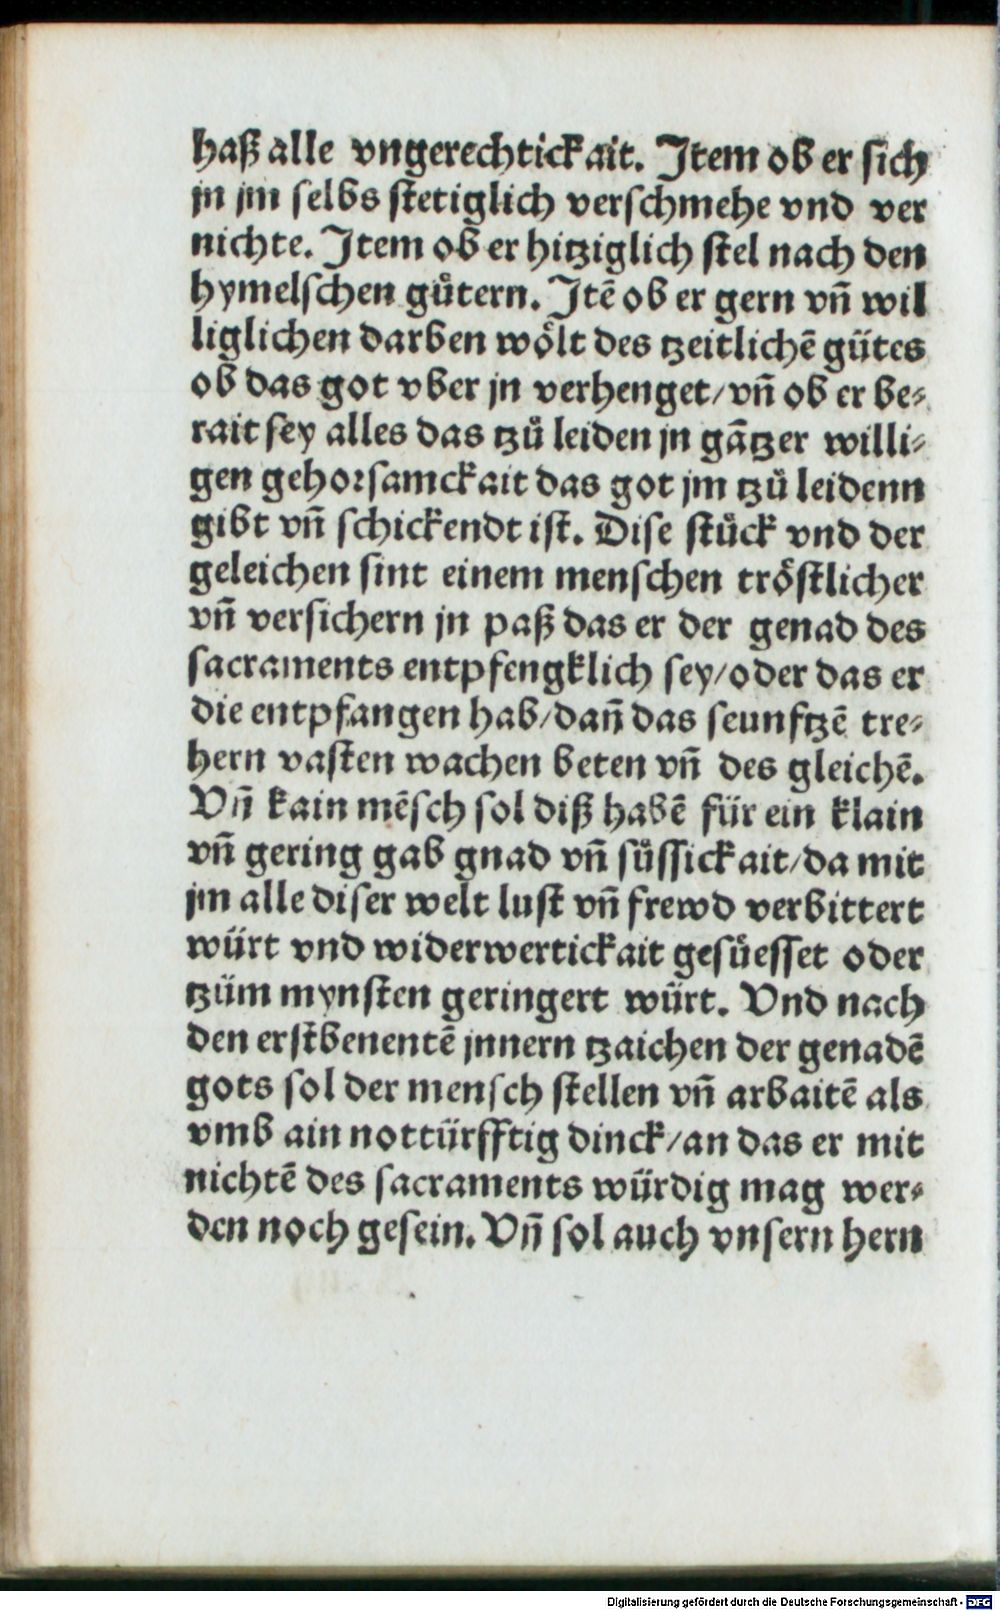 haß alle vngerechtickait. Item ob er sich
jn jm selbs stetiglich verschmehe vnd ver
nichte. Item ob er hitziglich stel nach den
hymelschen gůtern. Itē ob er gern vn̄ wil
liglichen darben wo̊lt des tzeitlichē gütes
ob das got vber jn verhenget/vn̄ ob er be⸗
rait sey alles das tzů leiden jn gātzer willi⸗
gen gehorsamckait das got jm tzů leidenn
gibt vn̄ schickendt ist. Dise stůck vnd der
geleichen sint einem menschen tröstlicher
vn̄ versichern jn paß das er der genad des
sacraments entpfengklich sey/oder das er
die entpfangen hab/dan̄ das seunftzē tre⸗
hern vasten wachen beten vn̄ des gleichē.
Vn̄ kain mēsch sol diß habē für ein klain
vn̄ gering gab gnad vn̄ sůssickait/da mit
jm alle diser welt lust vn̄ frewd verbittert
würt vnd widerwertickait gesůesset oder
tzüm mynsten geringert würt. Vnd nach
den erstbenentē jnnern tzaichen der genadē
gots sol der mensch stellen vn̄ arbaitē als
vmb ain nottürfftig dinck/an das er mit
nichtē des sacraments würdig mag wer⸗
den noch gesein. Vn̄ sol auch vnsern hern
Digitalisierung gefördert durch die Deutsche Forschungsgemeinschaft - DFG